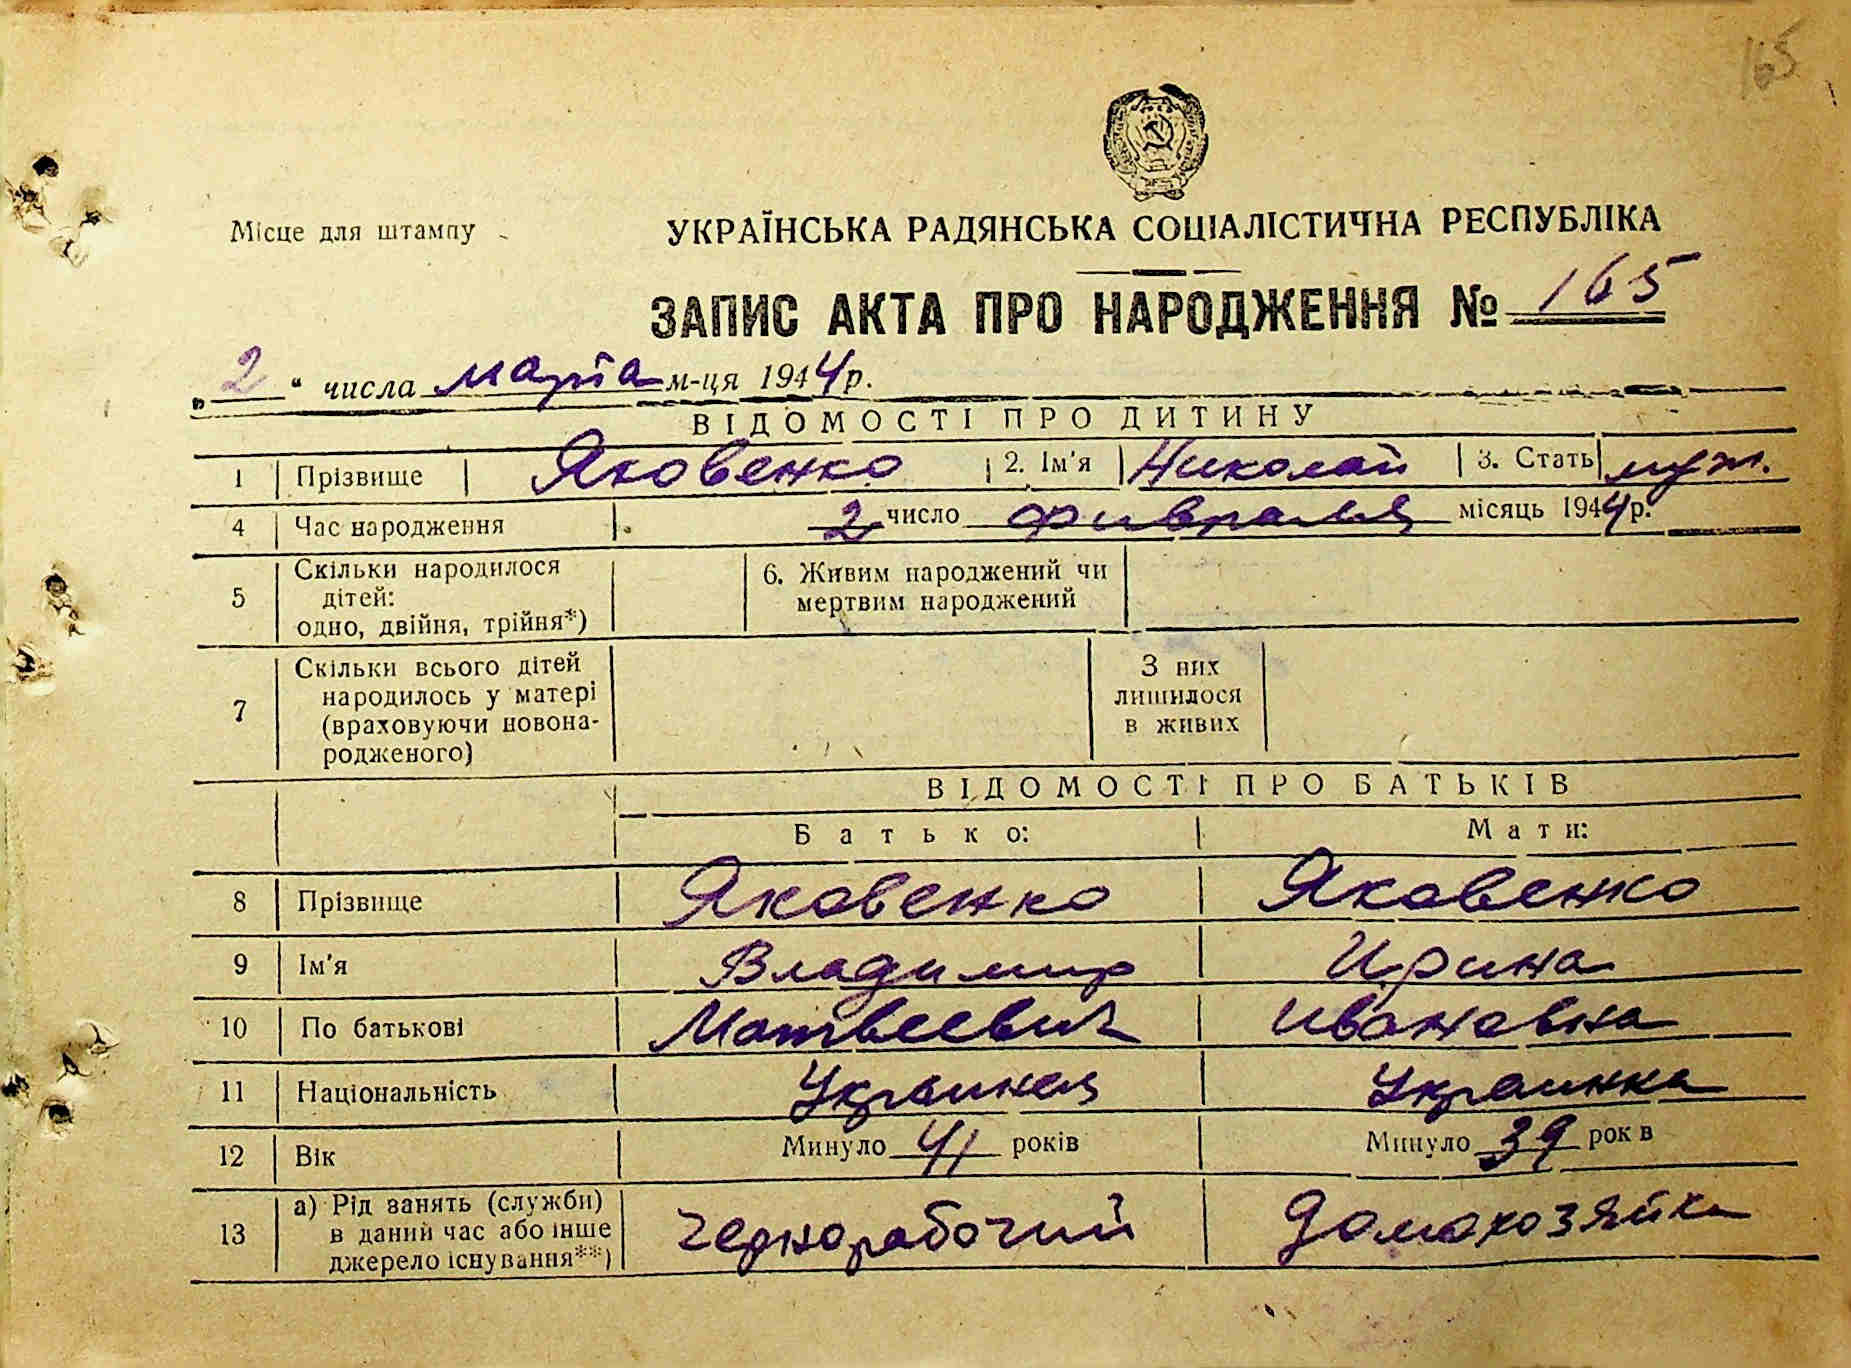 165
Місце для штампу
УКРАЇНСЬКА РАДЯНСЬКА СОЦІАЛІСТИЧНА РЕСПУБЛІКА
ЗАПИС АКТА ПРО НАРОДЖЕННЯ № 165
„ 2 “ числа марта м-ця 1944р.
ВІДОМОСТІ ПРО ДИТИНУ
1 Прізвище Яковенко 2. Ім'я Николай 3. Стать муж.
4 Час народження 2 число февраля місяць 1944р.
5 Скільки народилося
дітей:
одно, двійня, трійня*)
6. Живим народжений чи
мертвим народжений
7 Скільки всього дітей
народилось у матері
(враховуючи новона-
родженого)
З них
лишилося
в живих
ВІДОМОСТІ ПРО БАТЬКІВ
Батько: Мати:
8 Прізвище Яковенко Яковенко
9 Ім'я Владимир Ирина
10 По батькові Матвеевич Ивановна
11 Національність Украинец Украинка
12 Вік Минуло 41 років Минуло 39 рок в
13 а) Рід занять (служби)
в даний час або інше
джерело існування**)
Чернорабочий Домохозяйка